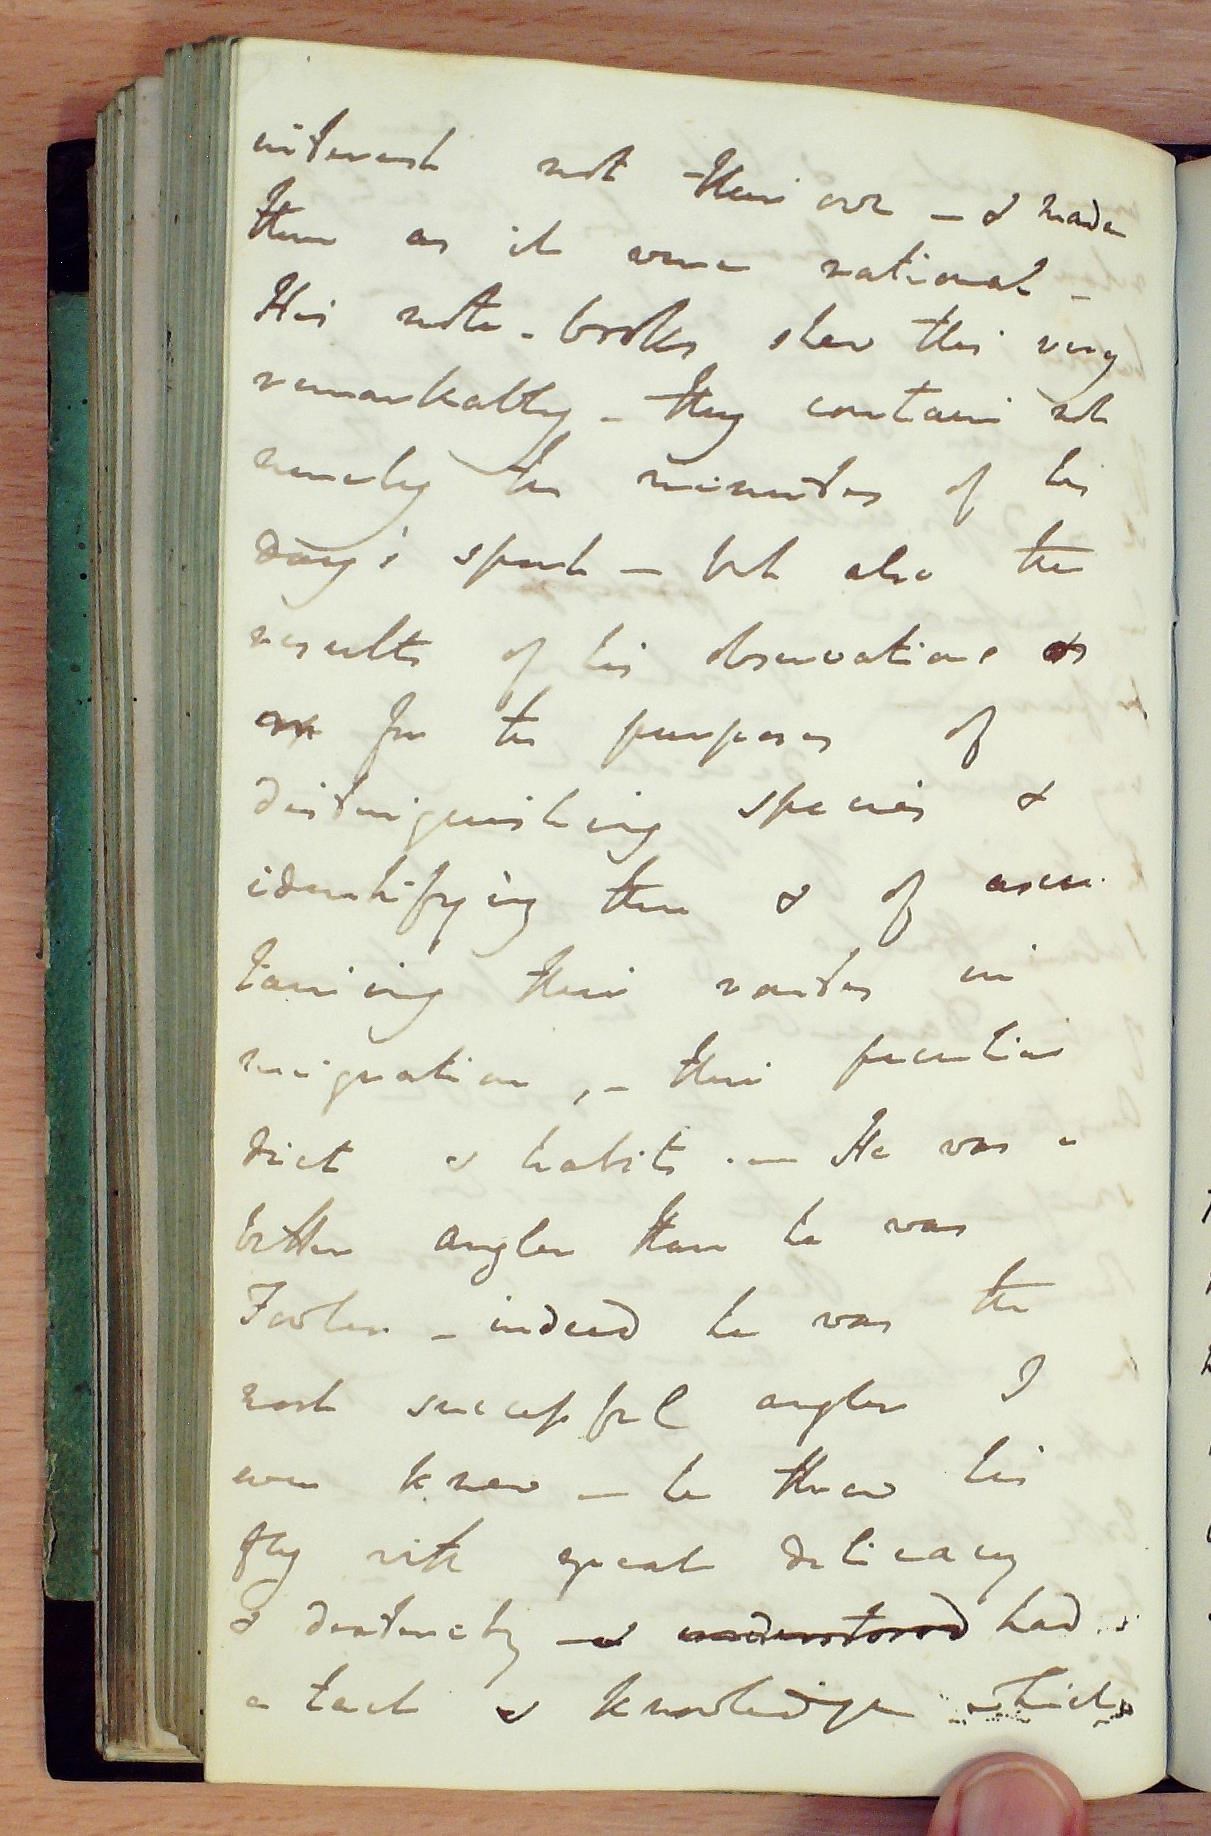 interest not their own – & made
them as it were national –
His note-books shew this very
remarkably – they contain not
merely the minutes of his
day's sport – but also the
results of his observations
for the purposes of
distinguishing species &
identifying them & of ascer
taining their routes in
migration, – their peculiar
diet & habits. – He was a
better angler than he was
Fowler – indeed he was the
most successful angler I
ever knew – he threw his
fly with great delicacy
& dexterity – & understood had
a tact & knowledge which